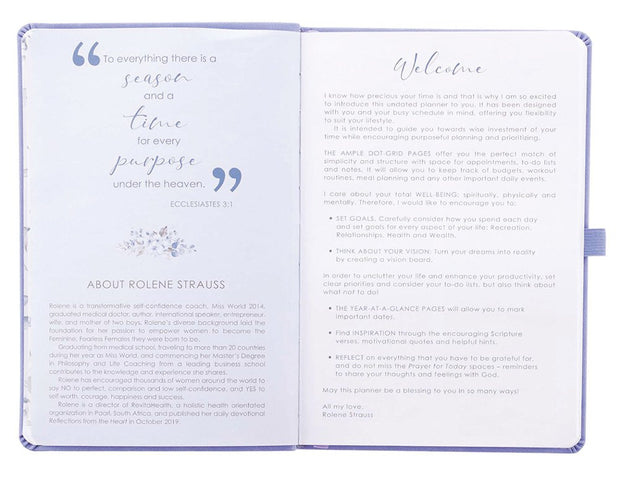 “To everything there is a
season
and a
time
for every
purpose
under the heaven.”
ECCLESIASTES 3:1
ABOUT ROLENE STRAUSS
Rolene is a transformative self-confidence coach, Miss World 2014,
graduated medical doctor, author, international speaker, entrepreneur,
wife, and mother of two boys. Rolene’s diverse background laid the
foundation for her passion to empower women to become The
Feminine, Fearless Females they were born to be.
Graduating from medical school, traveling to more than 20 countries
during her year as Miss World, and commencing her Master’s Degree
in Philosophy and Life Coaching from a leading business school
contributes to the knowledge and experience she shares.
Rolene has encouraged thousands of women around the world to
say NO to perfect, comparison and low self-confidence, and YES to
self worth, courage, happiness and success.
Rolene is a director of RevitaHealth, a holistic health orientated
organization in Paarl, South Africa, and published her daily devotional
Reflections from the Heart in October 2019.
Welcome
I know how precious your time is and that is why I am so excited
to introduce this undated planner to you. It has been designed
with you and your busy schedule in mind, offering you flexibility
to suit your lifestyle.
It is intended to guide you towards wise investment of your
time while encouraging purposeful planning and prioritizing.
THE AMPLE DOT-GRID PAGES offer you the perfect match of
simplicity and structure with space for appointments, to-do lists
and notes. It will allow you to keep track of budgets, workout
routines, meal planning and any other important daily events.
I care about your total WELL-BEING; spiritually, physically and
mentally. Therefore, I would like to encourage you to:
• SET GOALS. Carefully consider how you spend each day
and set goals for every aspect of your life: Recreation,
Relationships, Health and Wealth.
• THINK ABOUT YOUR VISION: Turn your dreams into reality
by creating a vision board.
In order to unclutter your life and enhance your productivity, set
clear priorities and consider your to-do lists, but also think about
what not to do!
• THE YEAR-AT-A-GLANCE PAGES will allow you to mark
important dates.
• Find INSPIRATION through the encouraging Scripture
verses, motivational quotes and helpful hints.
• REFLECT on everything that you have to be grateful for,
and do not miss the Prayer for Today spaces – reminders
to share your thoughts and feelings with God.
May this planner be a blessing to you in so many ways!
All my love
Rolene Strauss